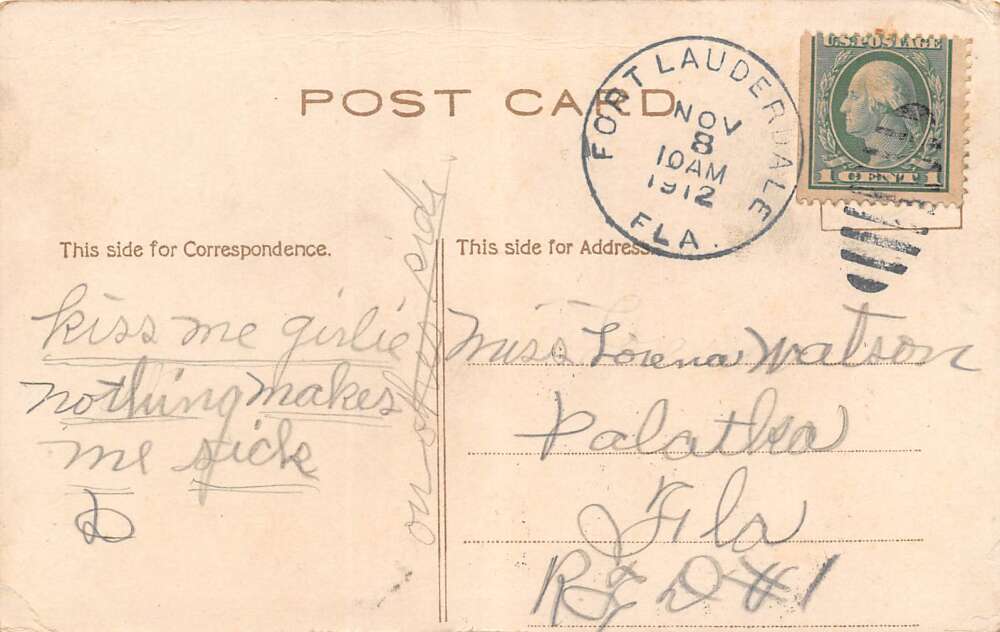 POST CARD
FORT LAUDERDALE
NOV
8
10AM
1912
FLA.
U.S. POSTAGE
1 CENT 1
This side for Correspondence.
This side for Address.
kiss me girlie
nothing makes
me sick
D
on other side
Miss Lorena Watson
Palatka
Fla
RFD #1